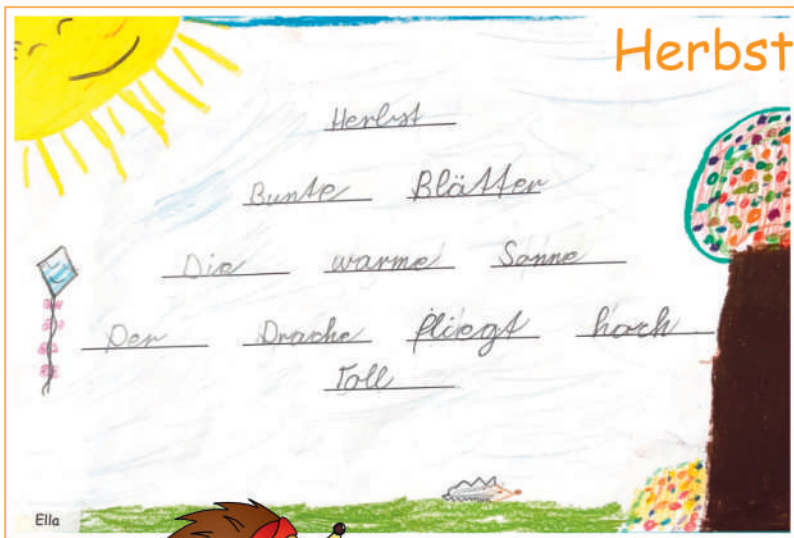 Herbst
Herbst
Bunte Blätter
Die warme Sonne
Der Drache fliegt hoch
Toll
Ella